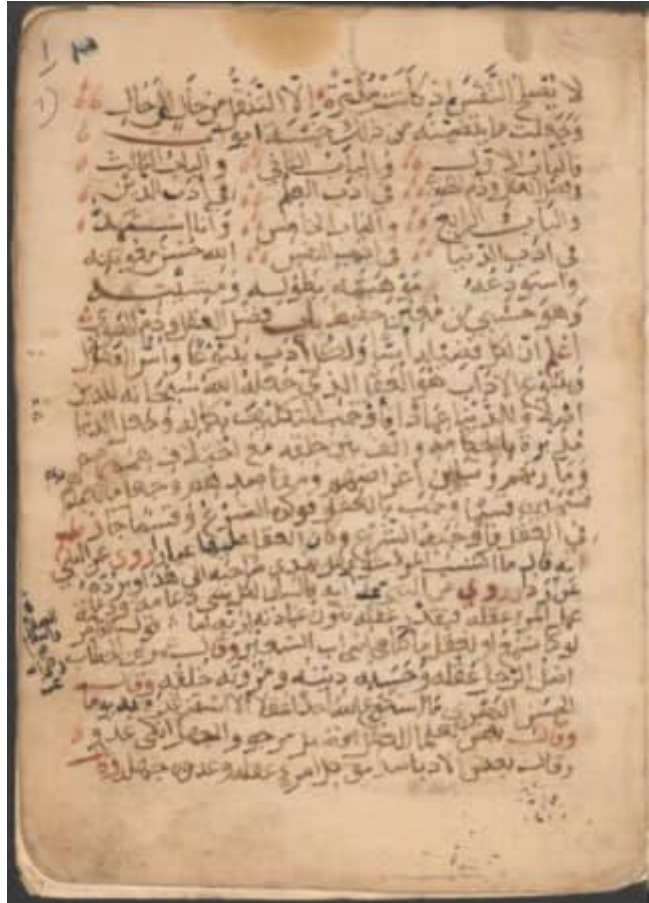 لا يصلح النفس اذ كانت مدبرة الا التنقل من حال الى حال
وجعلت ما تضمنه من ذلك خمسة ابواب
فالباب الاول والباب الثاني والباب الثالث
في ادب العلم في ادب الدين
والباب الرابع والباب الخامس وانا استمد
في ادب الدنيا في ادب النفس الله حسن توفيقه
واستودعه موهبته بطوله ومشيئته
وهو حسبي من معين حفيظ باب فضل العقل وذم
اعلم ان لكل فضيلة اسا ولكل ادب ينبوعا واس الفضائل
وينبوع الاداب هو العقل الذي جعله الله سبحانه للدين
اصلا وللدنيا عمادا فاوجب التكليف بكماله وجعل الدنيا
مدبرة باحكامه والف بين خلقه مع اختلاف هممهم
وماربهم وتباين اغراضهم ومقاصدهم وجعل ما
قسمين قسما وجب بالعقل فوكده الشرع وقسما جاز
في العقل فاوجبه الشرع وكان العقل عليهما عيارا روي عن النبي
انه قال ما اكتسب المرء مثل عقل يهدي صاحبه الى هدى او يرده
عن ردا وروي عن النبي انه قال لكل شيء دعامة ودعامة
عمل المرء عقله فبقدر عقله تكون عبادته لربه قول الفاجر
لو كنا نسمع او نعقل ما كنا في اصحاب السعير وقال عمر بن الخطاب
اصل الرجل عقله وحسبه دينه ومروته خلقه وقال
الحسن البصري ما استودع الله احدا عقلا الا استنقذه به يوما ما
وقال بعض العلما العقل مرجو والجهل انكى عدو
وقال بعض الادبا صديق كل امرئ عقله وعدوه جهله وقال